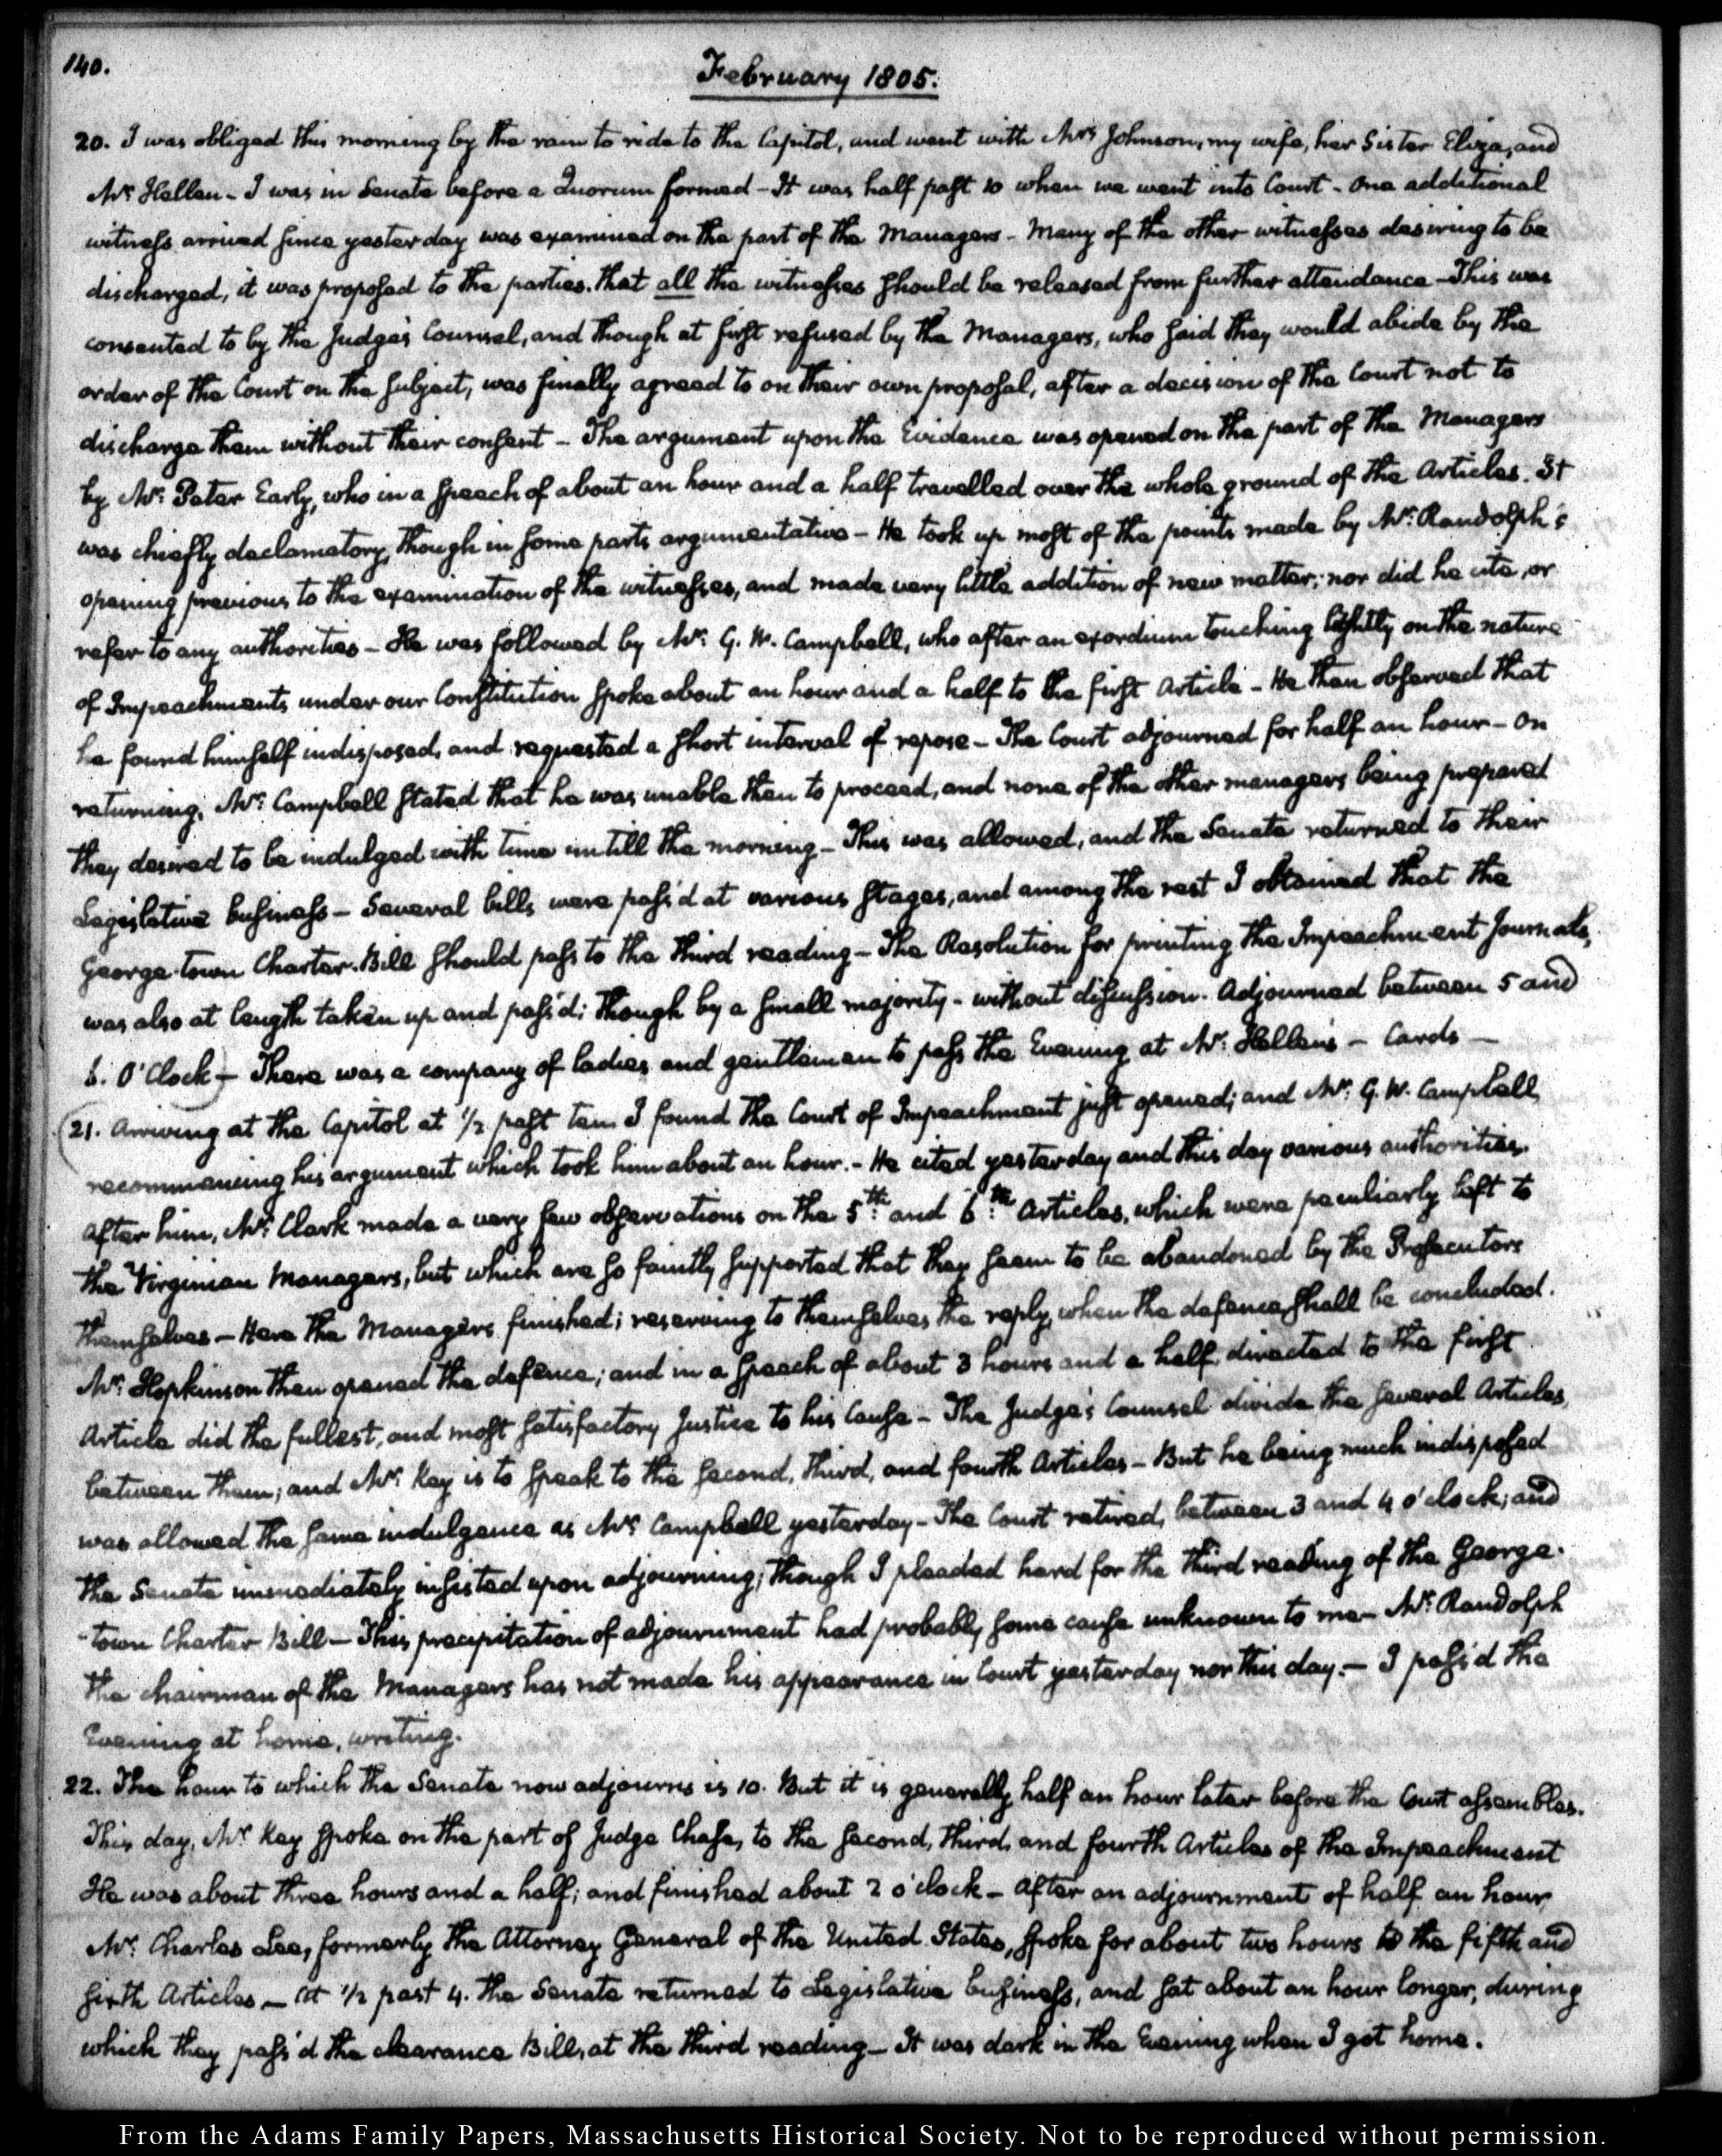 140.
February 1805.
20. I was obliged this morning by the rain to ride to the Capitol, and went with Mrs Johnson, my wife, her Sister Eliza, and
Mr: Hellen - I was in Senate before a Quorum formed - It was half past 10 when we went into Court - One additional
witness arrived since yesterday was examined on the part of the Managers - Many of the other witnesses desiring to be
discharged, it was proposed to the parties, that all the witnesses should be released from further attendance - This was
consented to by the Judge's Counsel, and though at first refused by the Managers, who said they would abide by the
order of the Court on the subject, was finally agreed to on their own proposal, after a decision of the Court not to
discharge them without their consent - The argument upon the Evidence was opened on the part of the Managers
by Mr: Peter Early, who in a speech of about an hour and a half travelled over the whole ground of the Articles. It
was chiefly declamatory, though in some parts argumentative - He took up most of the points made by Mr: Randolph's
opening previous to the examination of the witnesses, and made very little addition of new matter; nor did he cite, or
refer to any authorities - He was followed by Mr: G. W. Campbell, who after an exordium touching lightly on the nature
of Impeachments under our Constitution spoke about an hour and a half to the first Article - He then observed that
he found himself indisposed, and requested a short interval of repose - The Court adjourned for half an hour - On
returning, Mr: Campbell stated that he was unable then to proceed, and none of the other managers being prepared
they desired to be indulged with time untill the morning - This was allowed, and the Senate returned to their
Legislative business - Several bills were pass'd at various stages, and among the rest I obtained that the
George-town Charter Bill should pass to the third reading - The Resolution for printing the Impeachment Journals,
was also at length taken up and pass'd; though by a small majority - without discussion. Adjourned between 5 and
6. O'Clock - There was a company of ladies and gentlemen to pass the Evening at Mr: Hellen's - Cards -
21. Arriving at the Capitol at 1/2 past ten I found the Court of Impeachment just opened; and Mr: G. W. Campbell
recommencing his argument which took him about an hour. - He cited yesterday and this day various authorities.
After him, Mr: Clark made a very few observations on the 5th: and 6th: Articles, which were peculiarly left to
the Virginian Managers, but which are so faintly supported that they seem to be abandoned by the Prosecutors
themselves - Here the Managers finished; reserving to themselves the reply, when the defence shall be concluded.
Mr: Hopkinson then opened the defence; and in a speech of about 3 hours and a half, directed to the first
Article did the fullest, and most satisfactory Justice to his Cause - The Judge's Counsel divide the several Articles
between them; and Mr: Key is to speak to the second, third, and fourth Articles - But he being much indisposed
was allowed the same indulgence as Mr: Campbell yesterday - The Court retired, between 3 and 4 o'clock; and
the Senate immediately insisted upon adjourning; though I pleaded hard for the third reading of the George-
-town Charter Bill - This precipitation of adjournment had probably some cause unknown to me - Mr: Randolph
the chairman of the Managers has not made his appearance in Court yesterday nor this day. - I pass'd the
Evening at home, writing.
22. The hour to which the Senate now adjourns is 10. But it is generally half an hour later before the Court assembles.
This day, Mr: Key spoke on the part of Judge Chase, to the second, third, and fourth Articles of the Impeachment
He was about three hours and a half; and finished about 2 o'clock - After an adjournment of half an hour
Mr: Charles Lee, formerly the Attorney General of the United States, spoke for about two hours to the fifth and
sixth Articles - At 1/2 past 4. the Senate returned to Legislative business, and sat about an hour longer, during
which they pass'd the clearance Bill, at the third reading - It was dark in the Evening when I got home.
From the Adams Family Papers, Massachusetts Historical Society. Not to be reproduced without permission.